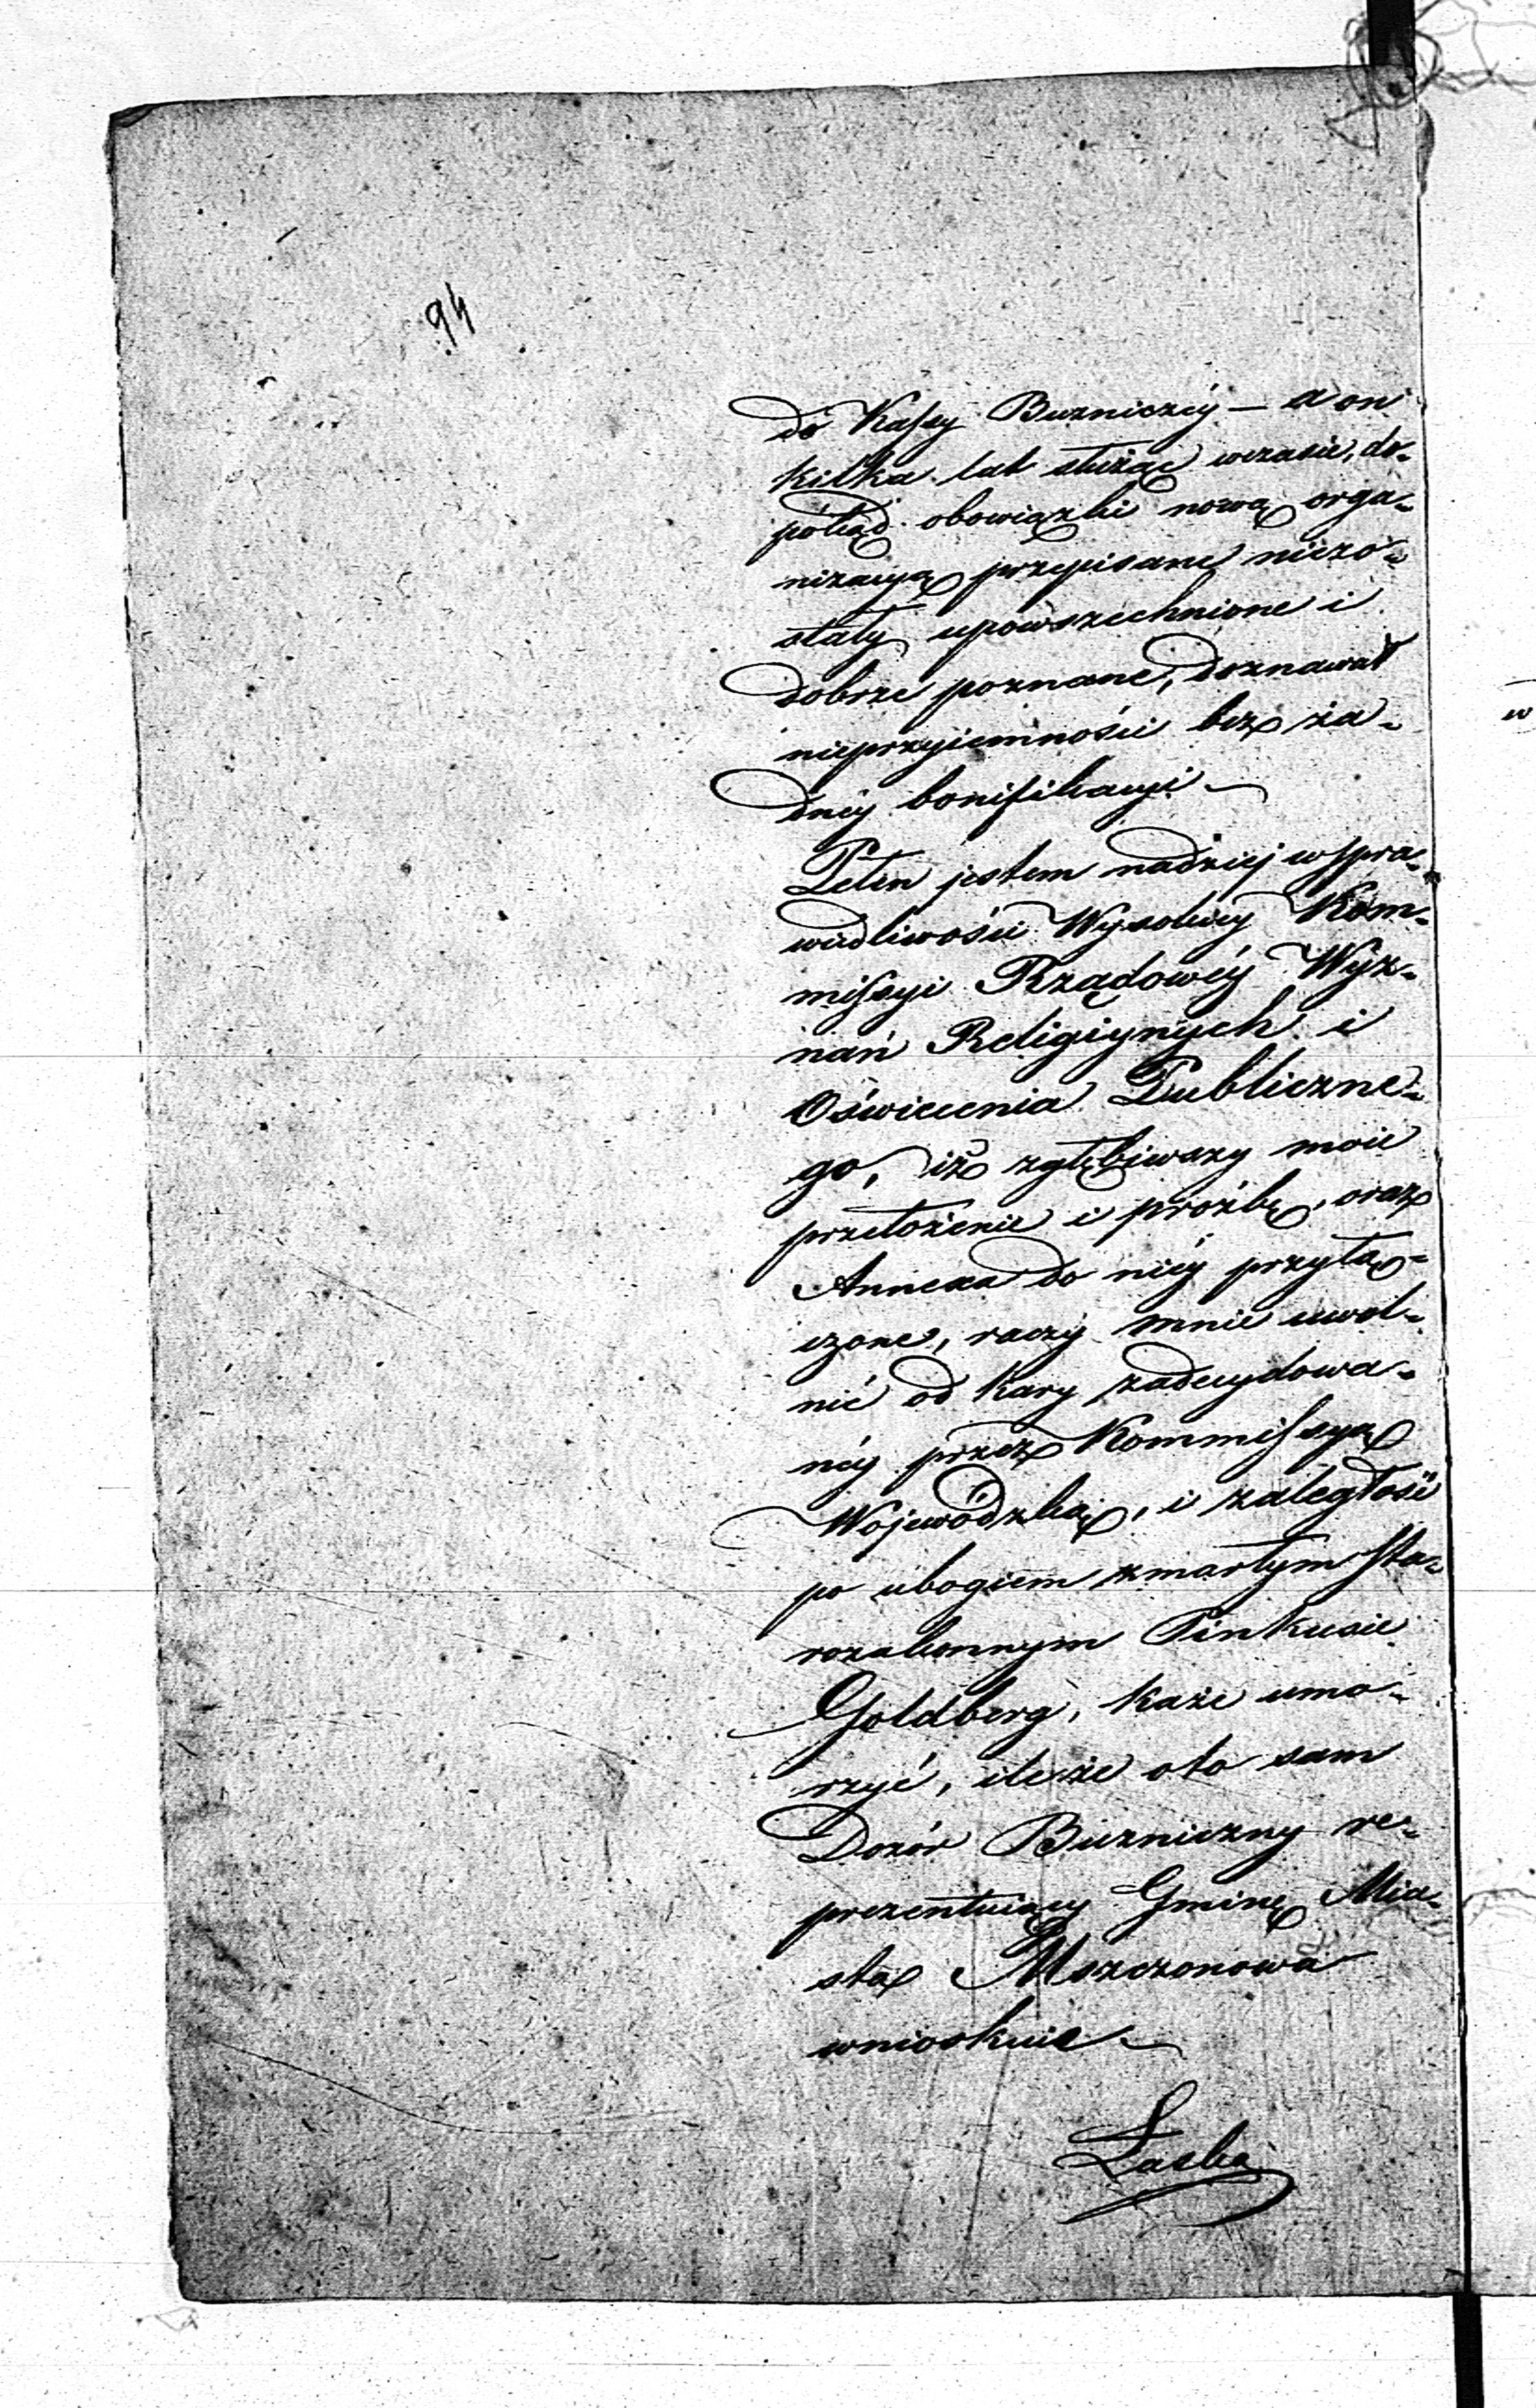 94
do Kassy Bużniczéy — a on
kilka lat służąc wczasie, do-
pótąd obowiązki nową orga-
nizacyą przepisane niezo-
stały upowszechnione i
dobrze poznane, doznawał
nieprzyiemności bez ża-
dnéy bonifikacyi —
Pełen jestem nadziej w spra-
wiedliwości Wysokiéy Kom-
missyi Rządowéy Wyz-
nań Religiynych i
Oświecenia Publiczne-
go, iż zgłębiwszy moie
przełożenie i prożbę, oraz
Annexa do niéy przyłą-
czone, raczy mnie uwol-
nić od kary zadecydowa-
néy przez Kommissyą
Wojewódzką, i zaległość
po ubogiem zmarłym sta-
rozakonnym Pinkusie
Goldberg, każe umo-
rzyć, ileże oto sam
Dozór Bużniczny re-
prezentuiący Gminę Mia-
sta Mszczonowa
wnioskuie —
Laska
w